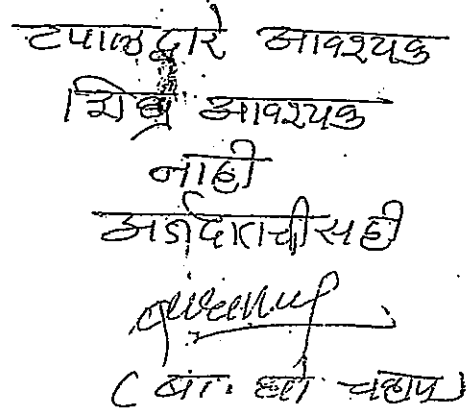 टपालद्वारे आवश्यक
शिघ्र आवश्यक
नाही
अर्जदाराची सही
( बा. हो. चव्हाण )